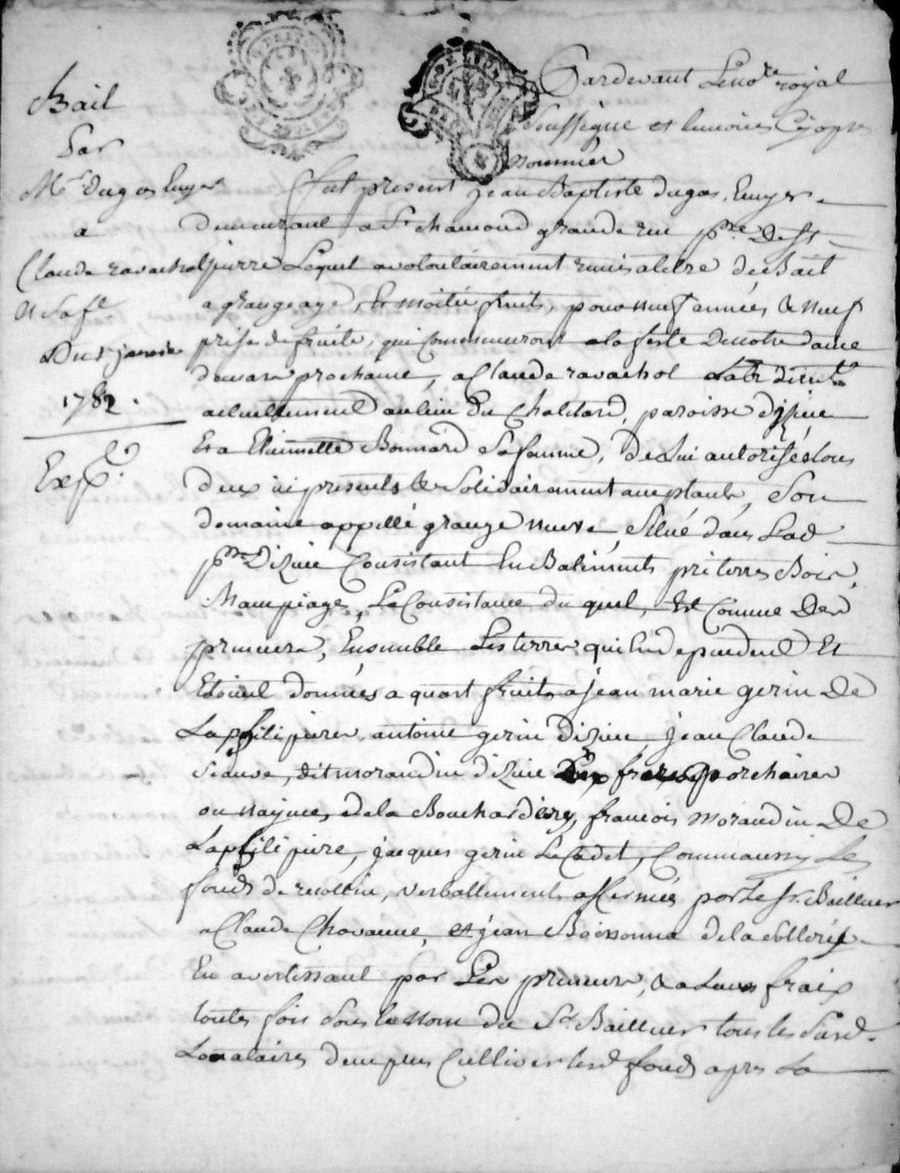 Bail
Par
Mr dugas Ecuyer
a
Claude ravachol
et sa fe.
Du 1 janvier
1782.
Exp.
Pardevant Le note royal
soussigné et temoins Cy apres
nommés
fut present jean Baptiste dugas, Ecuyer
demeurant a St chamond grande rue psse De St
pierre Lequel a volontairement remis a titre de Bail
a grangeage, et moitié fruits, pour neuf années & neuf
prises de fruits, qui Commenceront a la feste De notre dame
de mars prochaine, a Claude ravachol
actuellement au lieu Du Chatelard, paroisse d'izieu
Et a Etiennette Bonnard sa femme, de Lui autorisée, tous
deux ici presents & Solidairement acceptants, Son
domaine appellé grange neuve, Situé dans Lad
psse Dizieu Consistant En Batiments pré terres Bois,
, La Consistance du quel, Est Connue Des
preneurs, Ensemble Les terres qui En dependent Et
Etoient données a quart fruits a jean marie gerin De
La petitpierre, antoine gerin dizieu, jean Claude
seauve, dit morandin dizieu freres porchaires
de la Bouchardiery, francois morandin De
La petitpiere, jacques gerin Le Cadet, Comm aussy Les
fonds de recolin, verballement affermés par Le Sr. Bailleur
a Claude Chavanne, et jean Boissonna de la
En avertissant par Les preneurs, & a Leurs fraix
toutes fois Sous le nom du Sr Bailleur tous les susd.
Locataires de ne plus Cultiver lesd fonds apres La